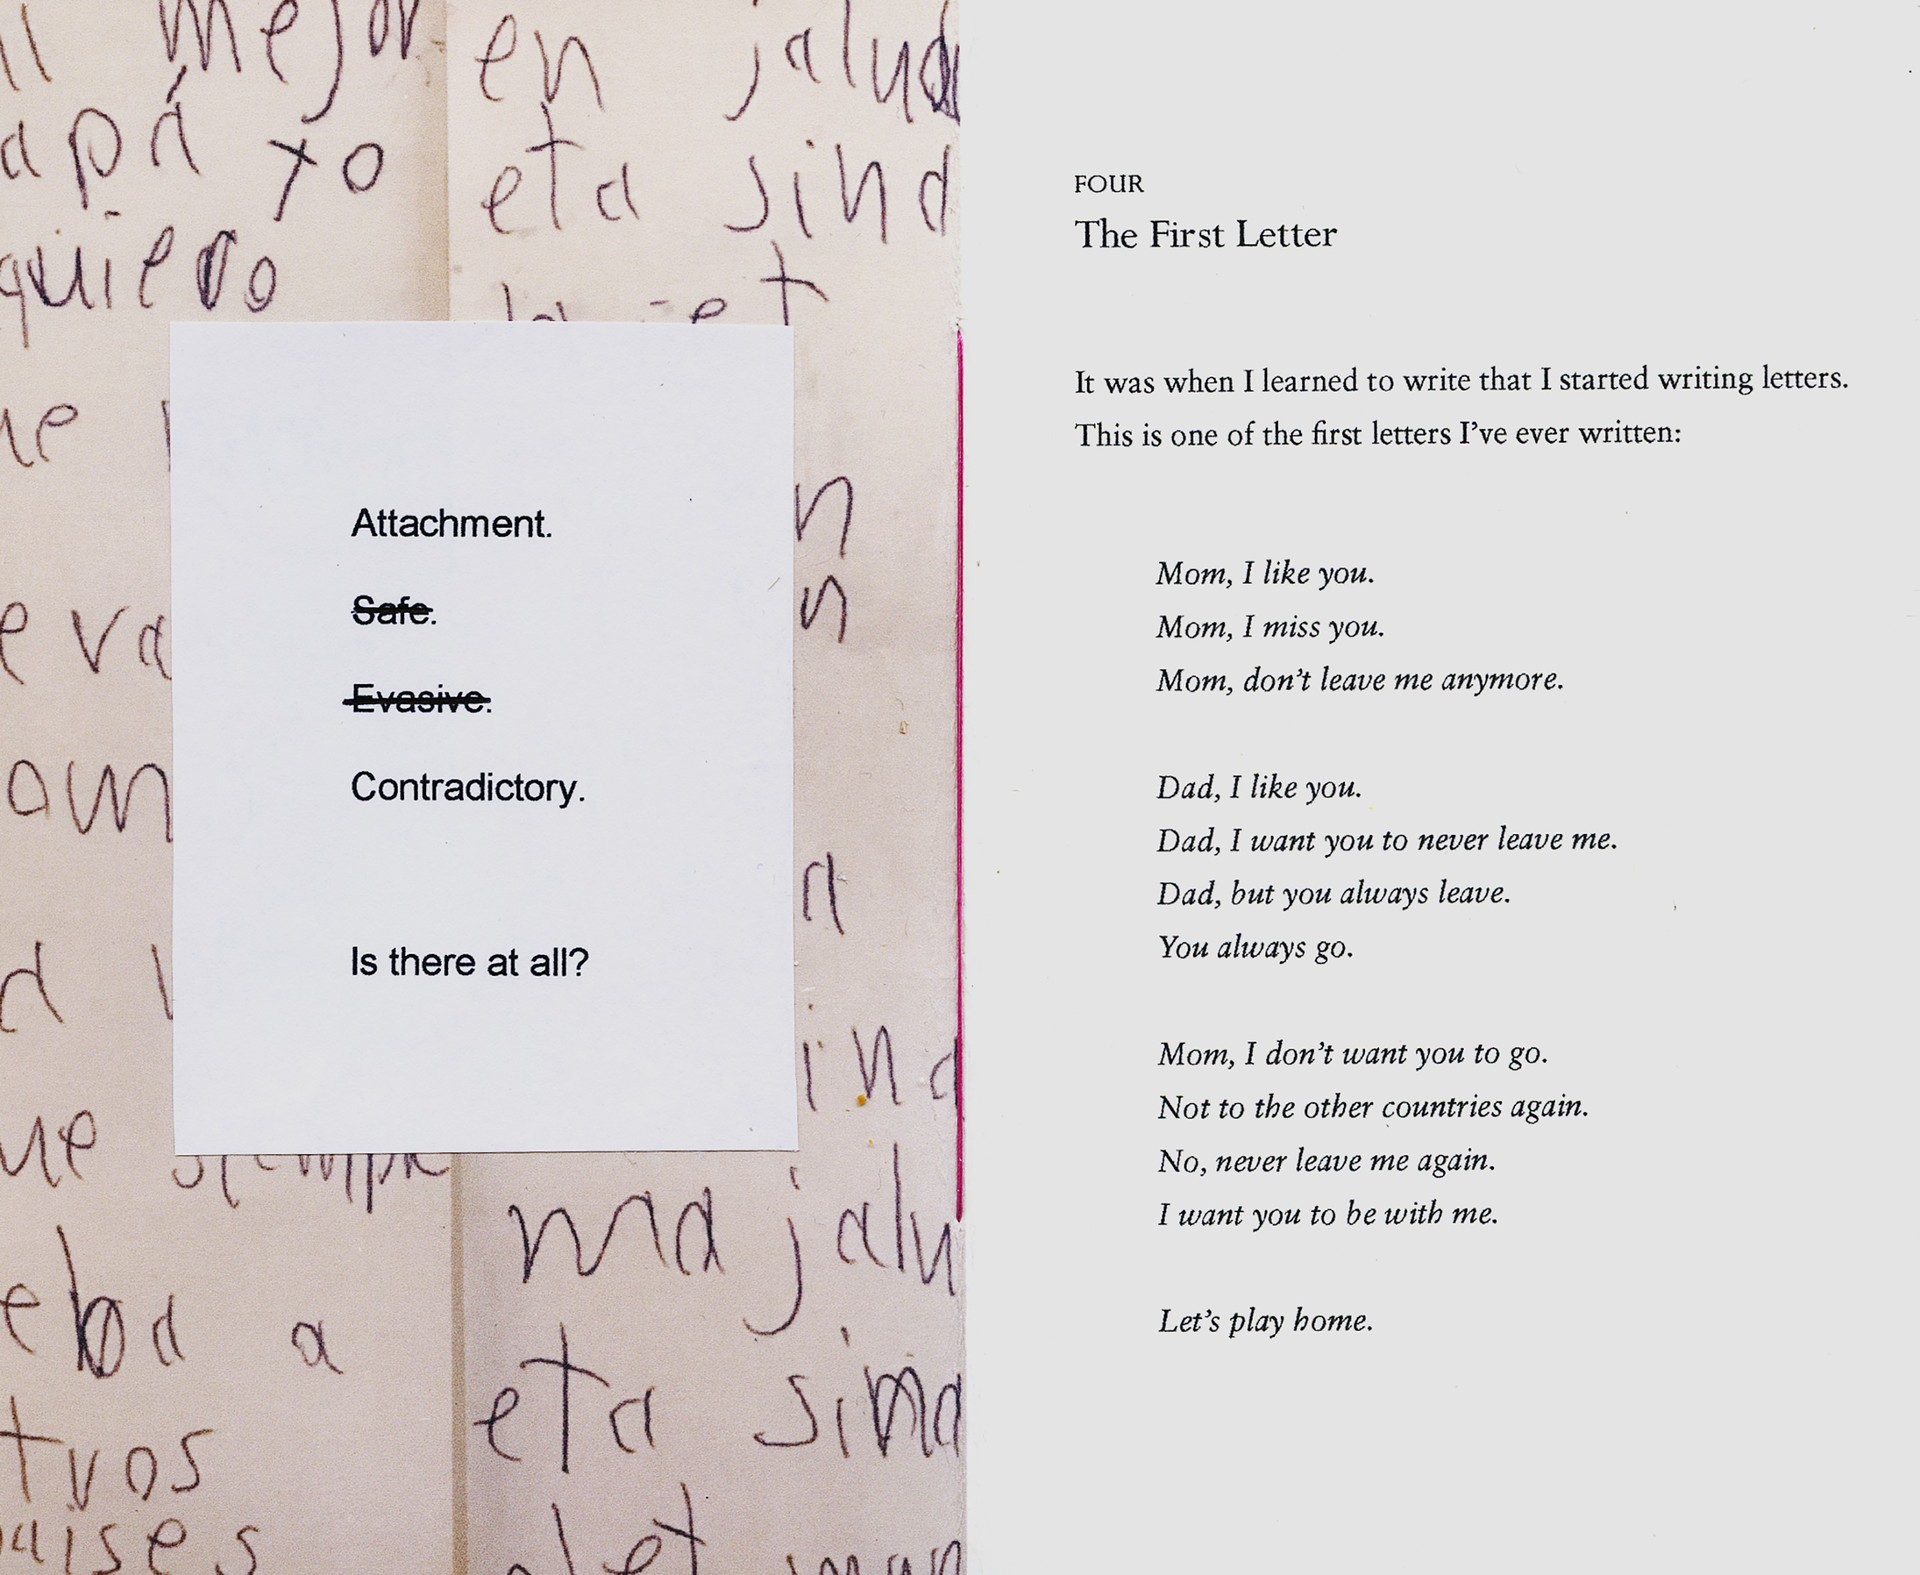 mejor
apá yo
quiero
eva
a
tvos
aises
en jalud
eta sind
ma jalu
eta sima
Attachment.
Safe.
Evasive.
Contradictory.
Is there at all?
FOUR
The First Letter
It was when I learned to write that I started writing letters.
This is one of the first letters I’ve ever written:
Mom, I like you.
Mom, I miss you.
Mom, don’t leave me anymore.
Dad, I like you.
Dad, I want you to never leave me.
Dad, but you always leave.
You always go.
Mom, I don’t want you to go.
Not to the other countries again.
No, never leave me again.
I want you to be with me.
Let’s play home.